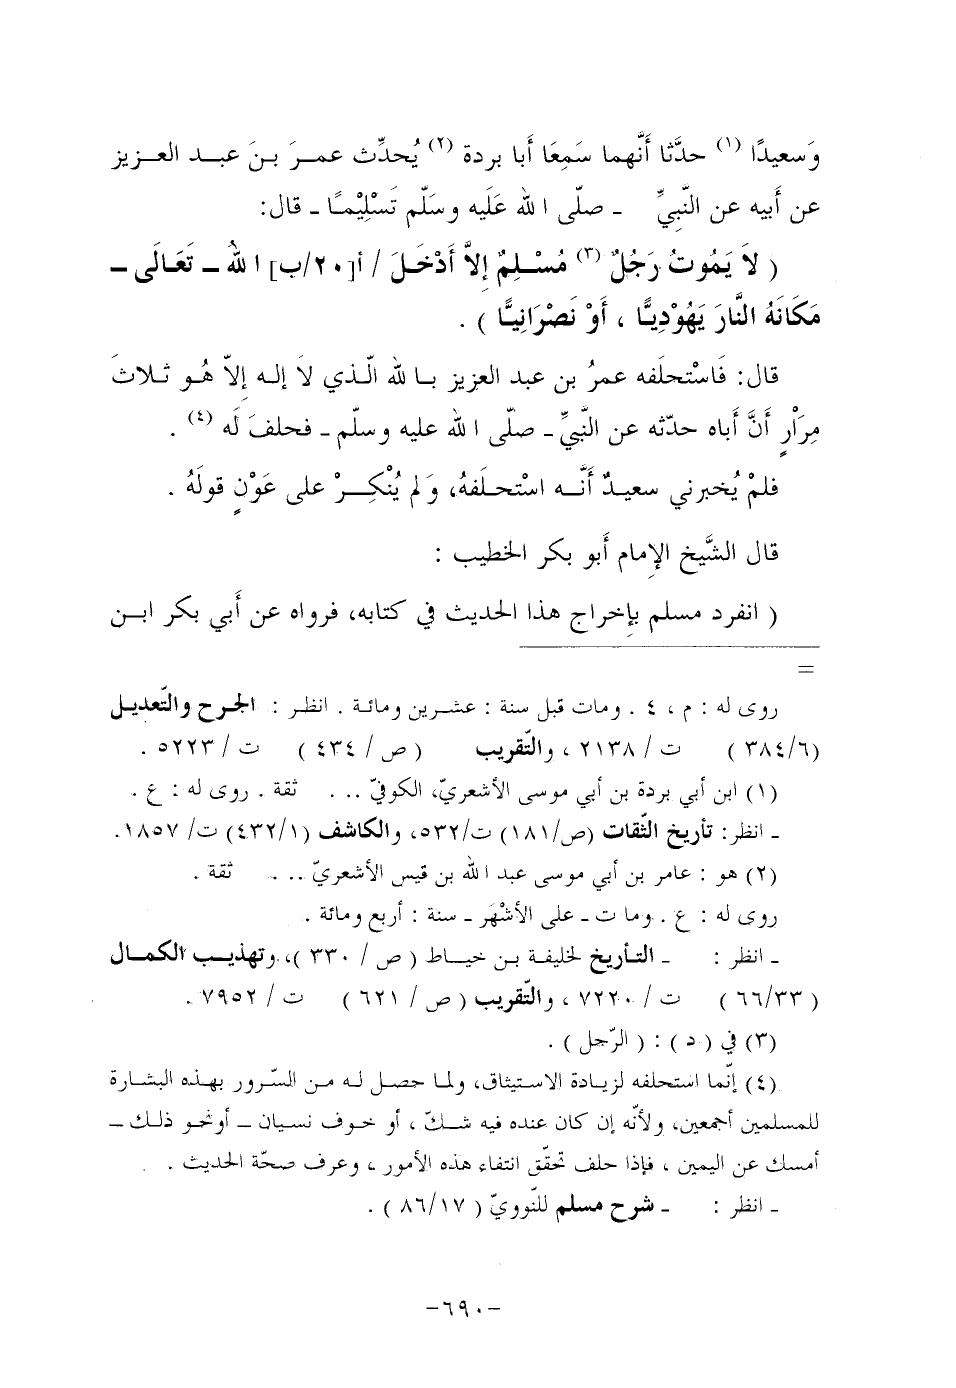 وَسعيدًا (١) حدَّثا أَنَّهما سَمِعَا أَبا بردة (٢) يُحدِّث عمـرَ بـنَ عبـد العـزيز
عن أَبيه عن النَّبيِّ - صلّى الله عَلَيه وسَلَّم تَسْلِيْمًا - قال:
( لاَ يَمُوتُ رَجُلٌ (٣) مُسْـلِمٌ إِلاَّ أَدْخَـلَ / أ[٢٠/ب] اللهُ - تَعَـالَى -
مَكَانَهُ النَّارَ يَهُوْدِيًّا ، أَوْ نَصْرَانِيًّا ) .
قال: فَاسْتحلَفه عمرُ بن عبد العزيز بالله الّـذي لاَ إلـه إلاّ هُـو ثـلاثَ
مِرَاْرٍ أَنَّ أَباه حدّثه عن النَّبيِّ - صلّى الله عليه وسلّم - فحلفَ لَه (٤) .
فلمْ يُخبرني سعيدٌ أَنَّـه استْحـلَفهُ، وَلم يُنْكِـرْ على عَوْنٍ قولَهُ .
قال الشَّيخ الإِمام أَبو بكر الخطيب :
( انفرد مسلم بإِخراج هذا الحديث في كتابه، فرواه عن أَبي بكر ابـن
=
روى له : م ، ٤ . ومات قبل سنة : عشـرين ومائـة . انظـر : الجرح والتّعديـل
(٣٨٤/٦) ت / ٢١٣٨ ، والتّقريب (ص / ٤٣٤) ت / ٥٢٢٣ .
(١) ابن أبي بردة بن أبي موسى الأشعريّ، الكوفيّ .. . ثقة . روى له : ع .
- انظر: تأريخ الثّقات (ص/١٨١) ت/٥٣٢، والكاشف (٤٣٢/١) ت/ ١٨٥٧.
(٢) هو : عامر بن أبي موسى عبد الله بن قيس الأشعريّ .. . ثقة .
روى له : ع . ومات - على الأشْهَر - سنة : أربع ومائة .
- انظر : - التـأريخ لخليفـة بـن خيـاط ( ص / ٣٣٠ )، وتهذيـب الكمال
( ٦٦/٣٣ ) ت / ٧٢٢٠ ، والتّقريب ( ص / ٦٢١ ) ت / ٧٩٥٢ .
(٣) في ( د ) : ( الرّجل ) .
(٤) إنّما استحلفه لزيـادة الاسـتيثاق، ولما حصـل لـه مـن السّرور بهـذه البشارة
للمسلمين أجمعين، ولأنّه إن كان عنده فيه شـكّ ، أو خـوف نسيان - أو نحـو ذلـك -
أمسك عن اليمين ، فإذا حلف تحقّق انتفاء هذه الأمور ، وعرف صحّة الحديث .
- انظر : - شرح مسلم للنّوويّ ( ٨٦/١٧ ) .
-٦٩٠-